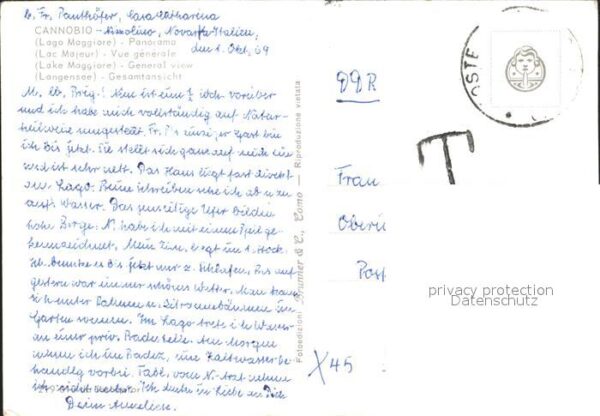 b. Fr. Panthöfer, Casa Catharina
CANNOBIO - Novara-Italien,
(Lago Maggiore) - Panorama
den 1. Okt. 69
(Lac Majeur) - Vue générale
(Lake Maggiore) - General view
(Langensee) - Gesamtansicht
M. lb. Brig.! Nun ist eine ½ Woch. vorüber
und ich habe mich vollständig auf Natur-
heilweise umgestellt. Fr. P.'s einziger Gast bin
ich bis jetzt. Sie stellt sich ganz auf mich ein
und ist sehr nett. Das Haus liegt fast direkt
am Lago. Beim Schreiben sehe ich ab u. zu
aufs Wasser. Das jenseitige Ufer bilden
hohe Berge. N. habe ich mit einem Pfeil ge-
kennzeichnet. Mein Zim. liegt im 1. Stock.
Ich bis jetzt nur 2 Bis auf
gestern war immer schönes Wetter. Man kann
sich unter Palmen u. Zitronenbäumen im
Garten sonnen. Im Lago trete ich Wasser
an einer priv. Badestelle. Am Morgen
nehm ich im Badez. eine Kaltwasserbe-
handlg vorbei. Tabl. vom N.-Arzt nehme
ich nicht Ich denke in Liebe an Dich
Deine Anneliese
Fotoedizioni Brunner & C., Como — Riproduzione vietata
DDR
POSTE
T
Frau
Post
X45
privacy protection
Datenschutz